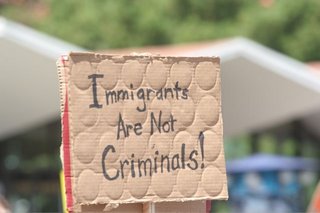 Immigrants
Are Not
Criminals!